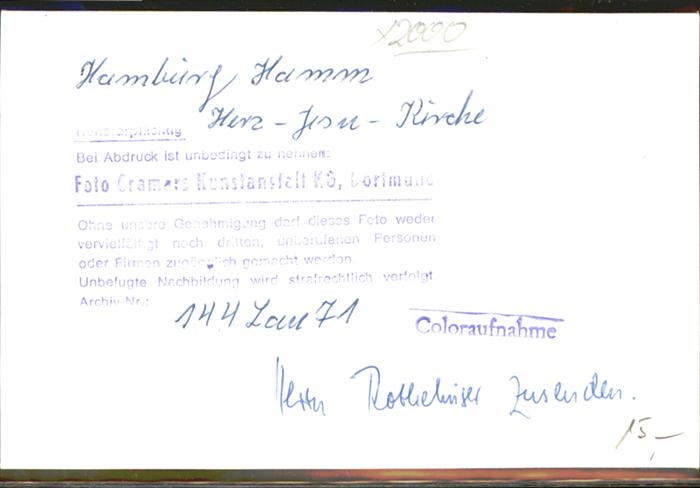 x2000
Hamburg Hamm
Herz-Jesu-Kirche
Honorarpflichtig
Bei Abdruck ist unbedingt zu nennen:
Foto Cramers Kunstanstalt KG, Dortmund
Ohne unsere Genehmigung darf dieses Foto weder
vervielfältigt noch dritten, unberufenen Personen
oder Firmen zugänglich gemacht werden.
Unbefugte Nachbildung wird strafrechtlich verfolgt
Archiv-Nr.:
144 Lau 71
Coloraufnahme
Herrn zusenden.
15,-